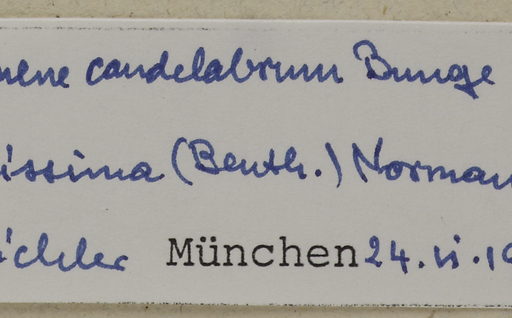 nene candelabrum Bunge
issima (Benth.) Norman
ichler München 24.vi.19